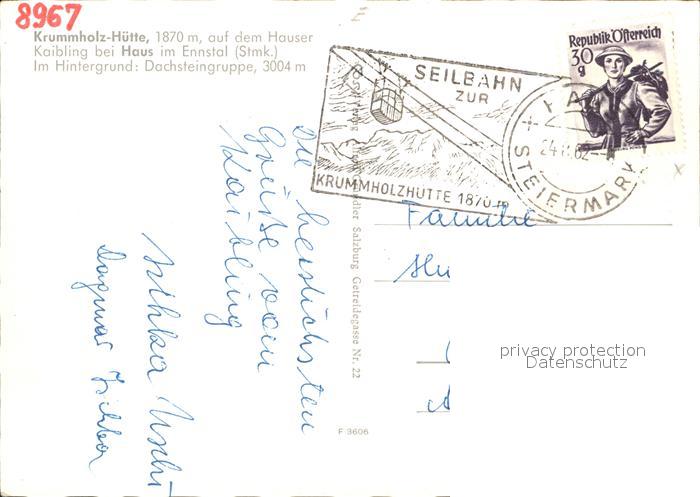 8967
Krummholz-Hütte, 1870 m, auf dem Hauser
Kaibling bei Haus im Ennstal (Stmk.)
Im Hintergrund: Dachsteingruppe, 3004 m
SEILBAHN
ZUR
KRUMMHOLZHÜTTE 1870 m
STEIERMARK
Republik Österreich
30
g
Die herzlichsten
Grüße vom
Kaibling
Dagmar
Familie
Salzburg Getreidegasse Nr. 22
F 3606
privacy protection
Datenschutz